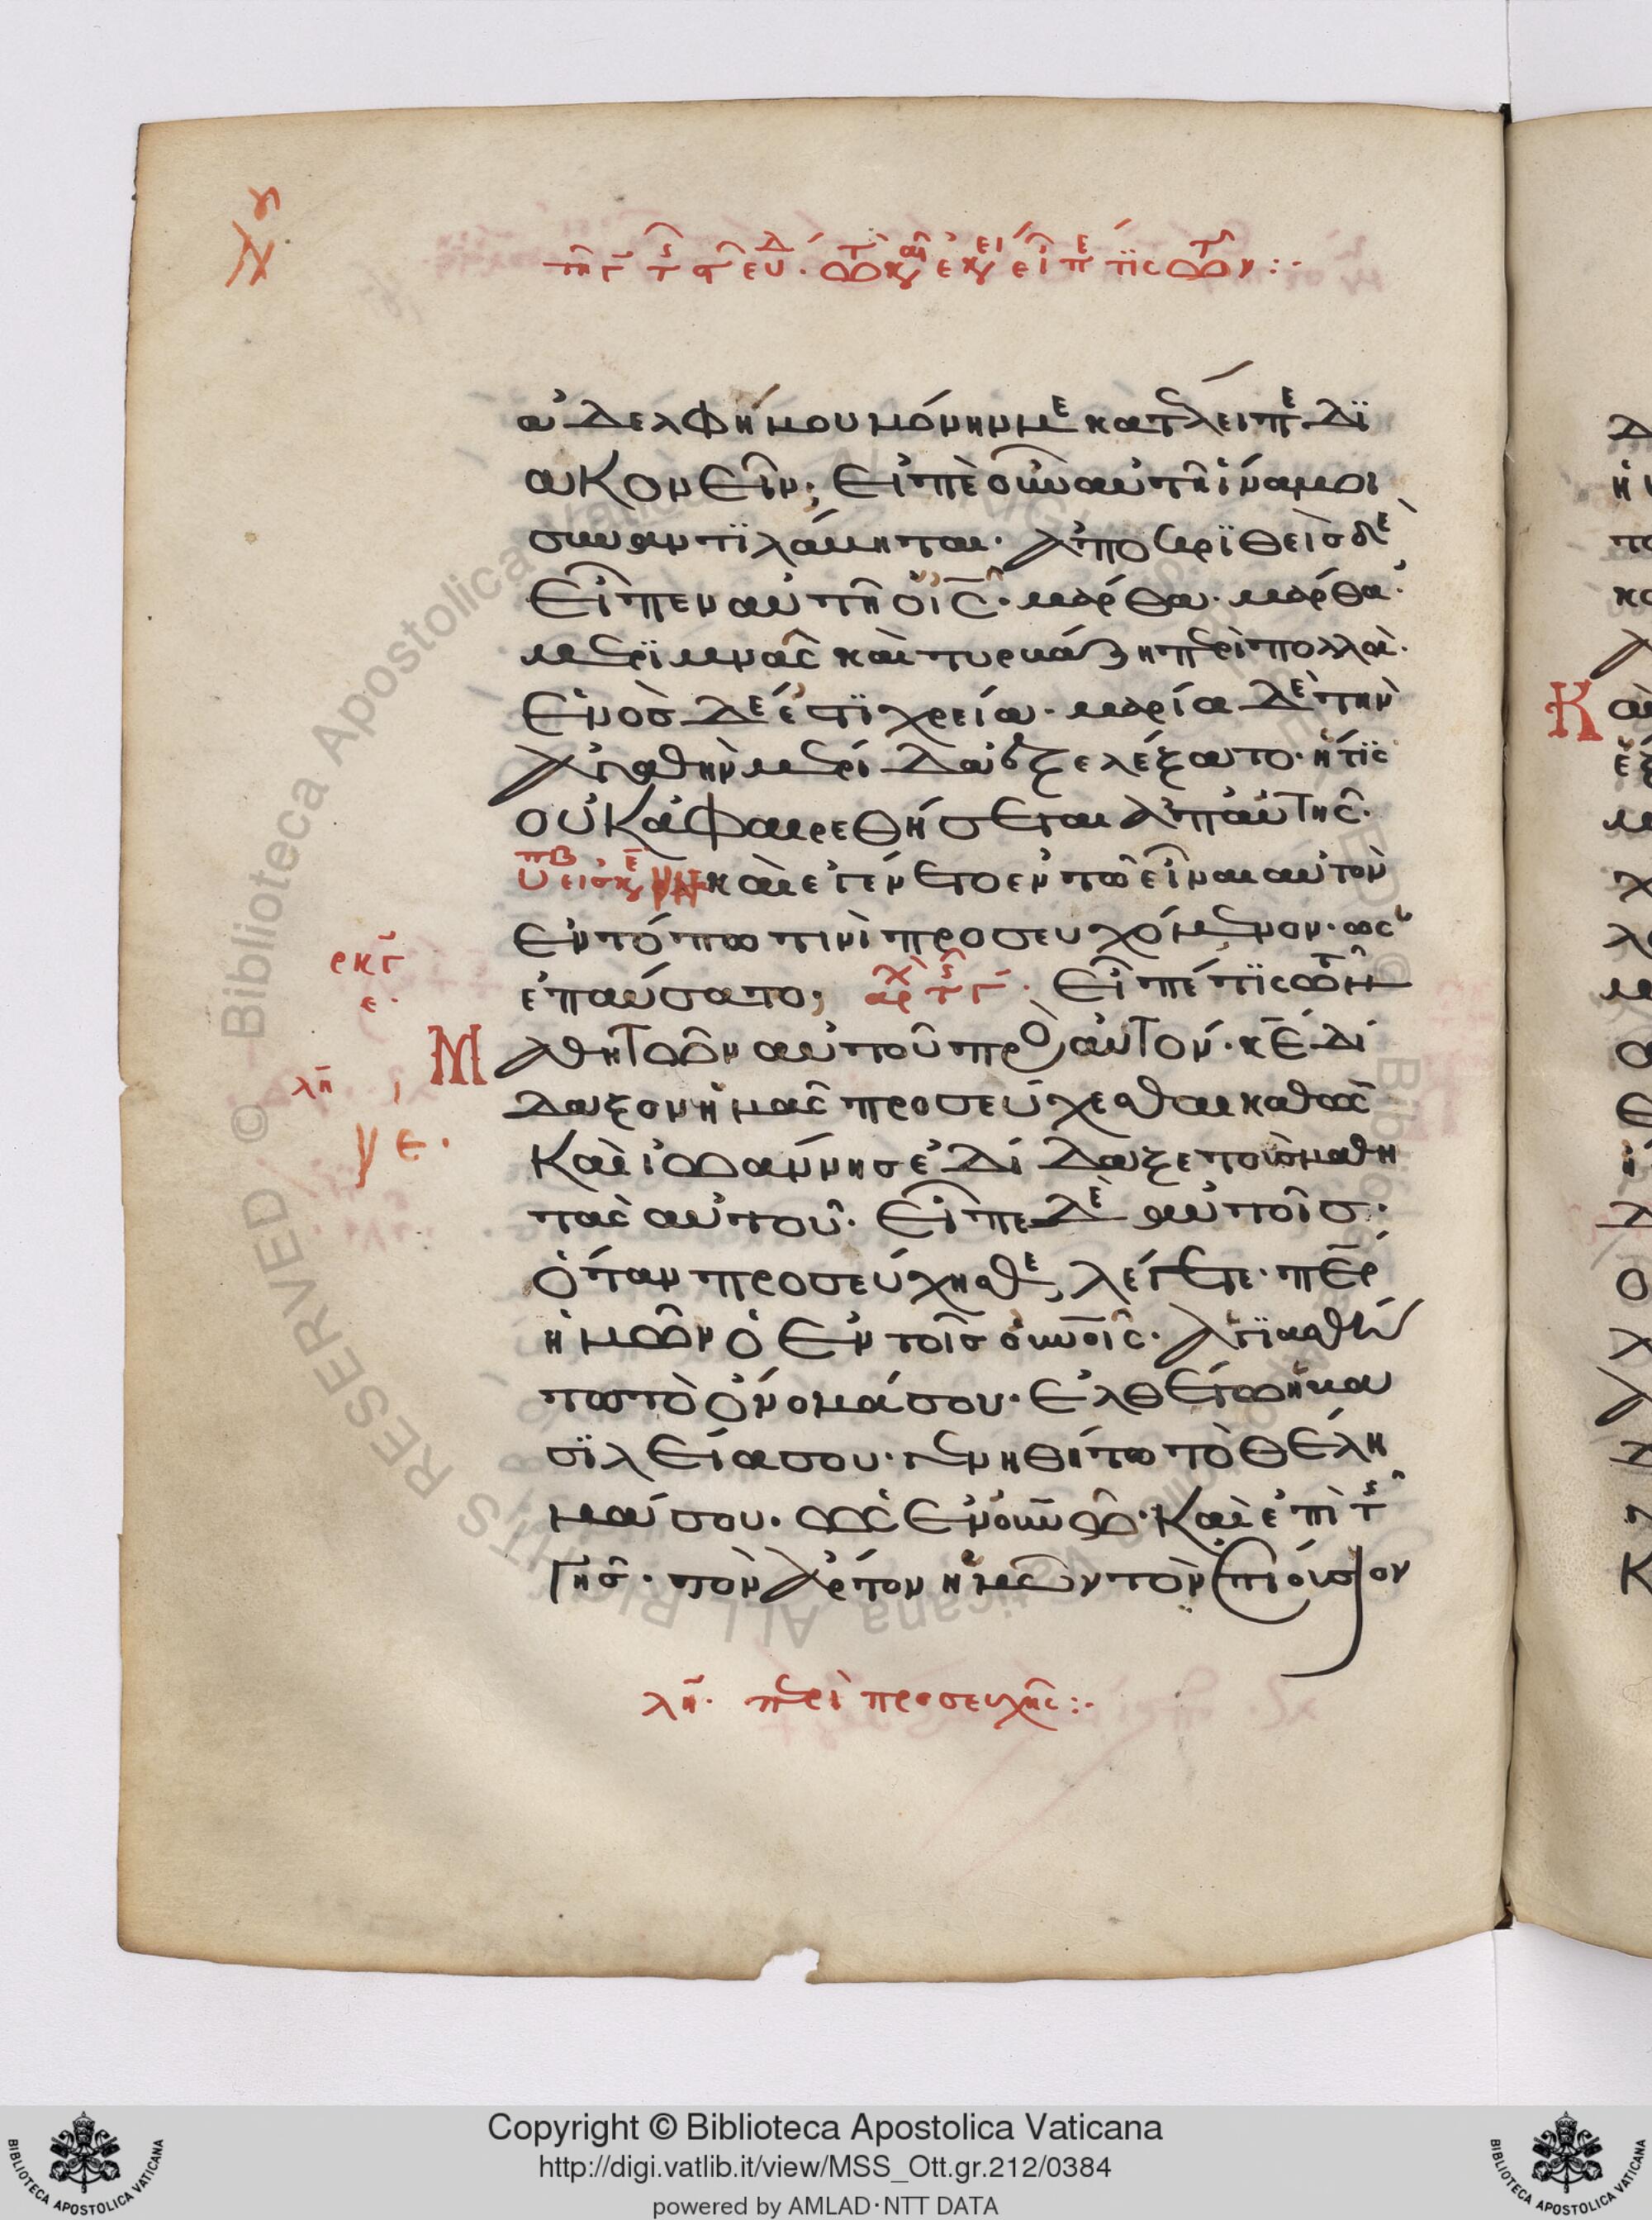 ἀδελφή μου μόνην με κατέλειπε δϊ
ακονεῖν; εἰπὲ οὖν αὐτῆ ἵνα μοι
συναντϊλάβηται· ἀποκρϊθεὶς δὲ
εἶπεν αὐτῆ ὁ ις̅· μάρθα· μάρθα·
μερϊμνᾶς καὶ τυρβάζη περὶ πολλὰ·
ἑνὸς δέ ἐστϊ χρεία· μαρία δὲ τὴν
ἀγαθὴν μερίδα ἐξελέξατο· ἥτϊς
οὐκ ἀφαιρεθήσεται ἀπ' αὐτῆς·
καὶ ἐγένετο ἐν τῶ εἶναι αὐτὸν
ἐν τόπω τινὶ προσευχόμενον· ὡς
ἐπαύσατο; εἶπέ τϊς τῶν
Μ
αθητῶν αὐτοῦ πρὸς αὐτόν· κ̅ε̅ δί
δαξον ἡμᾶς προσεύχεσθαι καθὼς
καὶ ἰωάννης ἐδίδαξε τοὺς μαθη
τὰς αὐτοῦ· εἶπε δὲ αὐτοῖς·
ὅταν προσεύχησθε, λέγετε· π̅ε̅ρ
ἡμῶν ὁ ἐν τοῖς ουνοῖς· ἁγϊασθή
τω τὸ ὄνομά σου· ἐλθέτω ἡ βα
σϊλεία σου· γενηθήτω τὸ θέλη
μά σου· ὡς ἐν ουνῶ· καὶ ἐπὶ τ
γῆς· τὸν ἄρτον ἡμῶν τὸν ἐπιούσιον
ρκγ
ε·
λη
λη· περὶ προσευχῆς:·
Copyright © Biblioteca Apostolica Vaticana
http://digi.vatlib.it/view/MSS_Ott.gr.212/0384
powered by AMLAD·NTT DATA
BIBLIOTECA APOSTOLICA VATICANA
BIBLIOTECA APOSTOLICA VATICANA